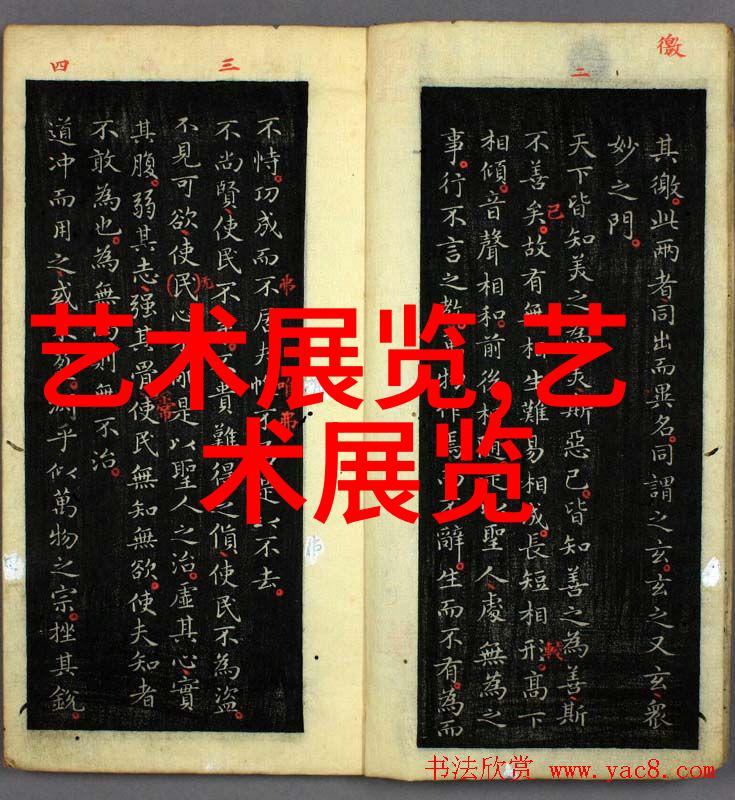 徼
二
其徼。此兩者同出而異名。同謂之玄。玄之又玄。衆
妙之門。
天下皆知美之為美斯惡已。皆知善之為善斯
不善矣。故有無相生難易相成。長短相形。高下
已
較
相傾。音聲相和。前後相是聖人處無為之
事。行不言之教。物作焉不辭。生而不有。為而
三
四
不恃。功成而不居夫不是以不去。
弗
弗
不尚賢。使民不不貴難得之貨。使民不為盜。
不見可欲。使(民)心不是以聖人之治。虛其心。實
无
常
其腹。弱其志。强其骨使民無知無欲。使夫知者
不敢為也。為無為則無不治。
道冲而用之或不盈。淵乎似萬物之宗。挫其銳。
艺术展览,艺
术展览
书法欣赏 www.yac8.com